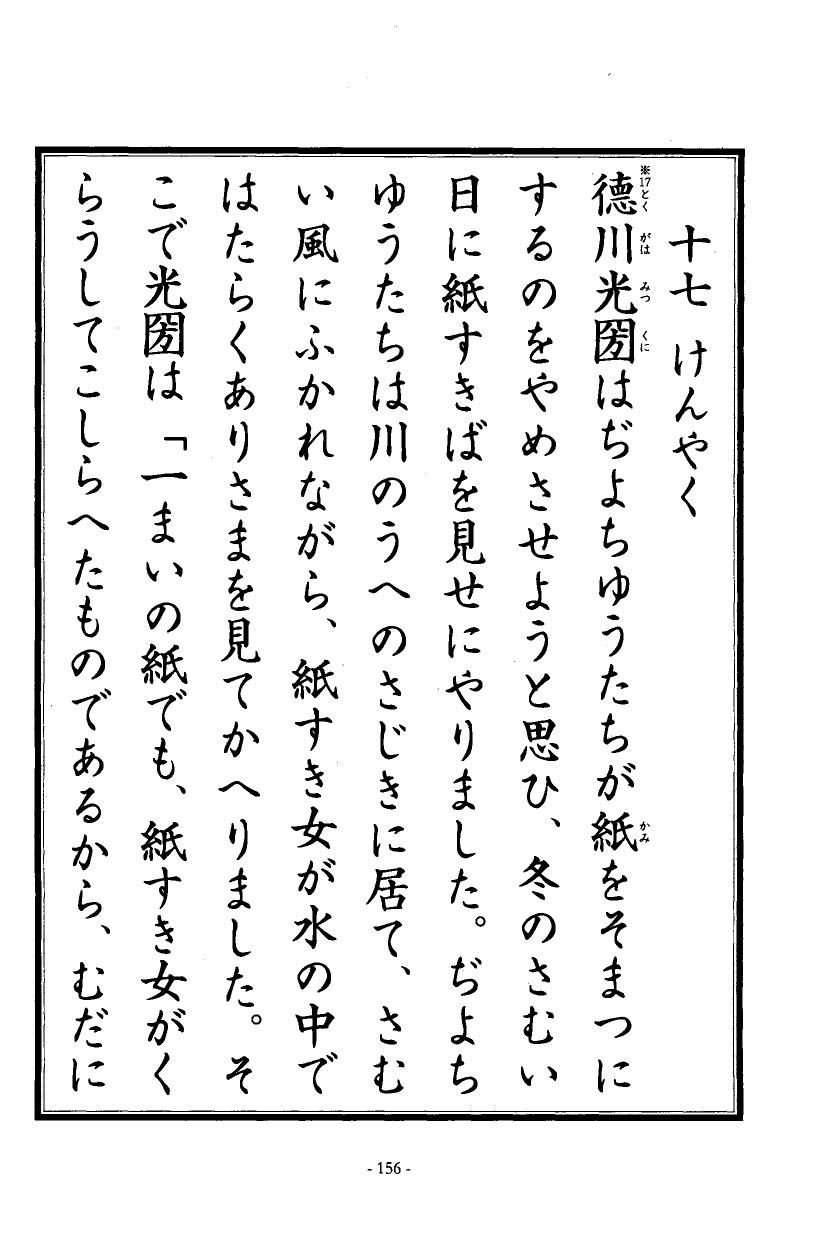 十七 けんやく
德川光圀はぢよちゆうたちが紙をそまつに
※17とく がは みつ くに かみ
するのをやめさせようと思ひ、冬のさむい
日に紙すきばを見せにやりました。ぢよち
ゆうたちは川のうへのさじきに居て、さむ
い風にふかれながら、紙すき女が水の中で
はたらくありさまを見てかへりました。そ
こで光圀は「一まいの紙でも、紙すき女がく
らうしてこしらへたものであるから、むだに
- 156 -